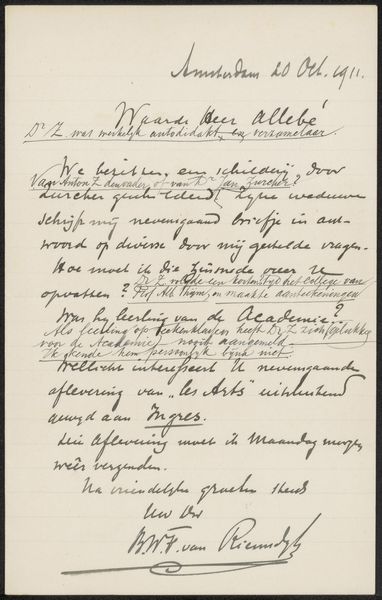 Amsterdam 20 Oct. 1911.
Waarde Heer Allebé
Dr Z. was werkelijk autodidakt en verzamelaar
We bezitten een schilderij door
Van Anton Z den vader, of van Dr Jan Zürcher?
Zürcher geschilderd. Zijne weduwe
schrijft mij nevensgaand briefje in ant-
woord op diverse door mij gestelde vragen.
Hoe moet ik die zinsnede over U
Dr Z volgde een korten tijd het College van
opvatten? Prof Alb Thijm, en maakte aanteekeningen
Was hij leerling van de Academie?
Als leerling op teekenklassen heeft Dr Z zich
voor de Academie nooit aangemeld.
Ik kende hem persoonlijk bijna niet.
Wellicht interesseert U nevensgaande
aflevering van "les Arts" uitsluitend
gewijd aan Ingres.
Die aflevering moet ik Maandag morgen
weêr verzenden.
Na vriendelijke groeten steeds
Uw Dw
B.W.F. van Riemsdijk